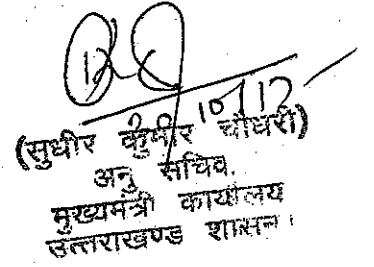 10/12
(सुधीर कुमार चौधरी)
अनु सचिव,
मुख्यमंत्री कार्यालय
उत्तराखण्ड शासन।